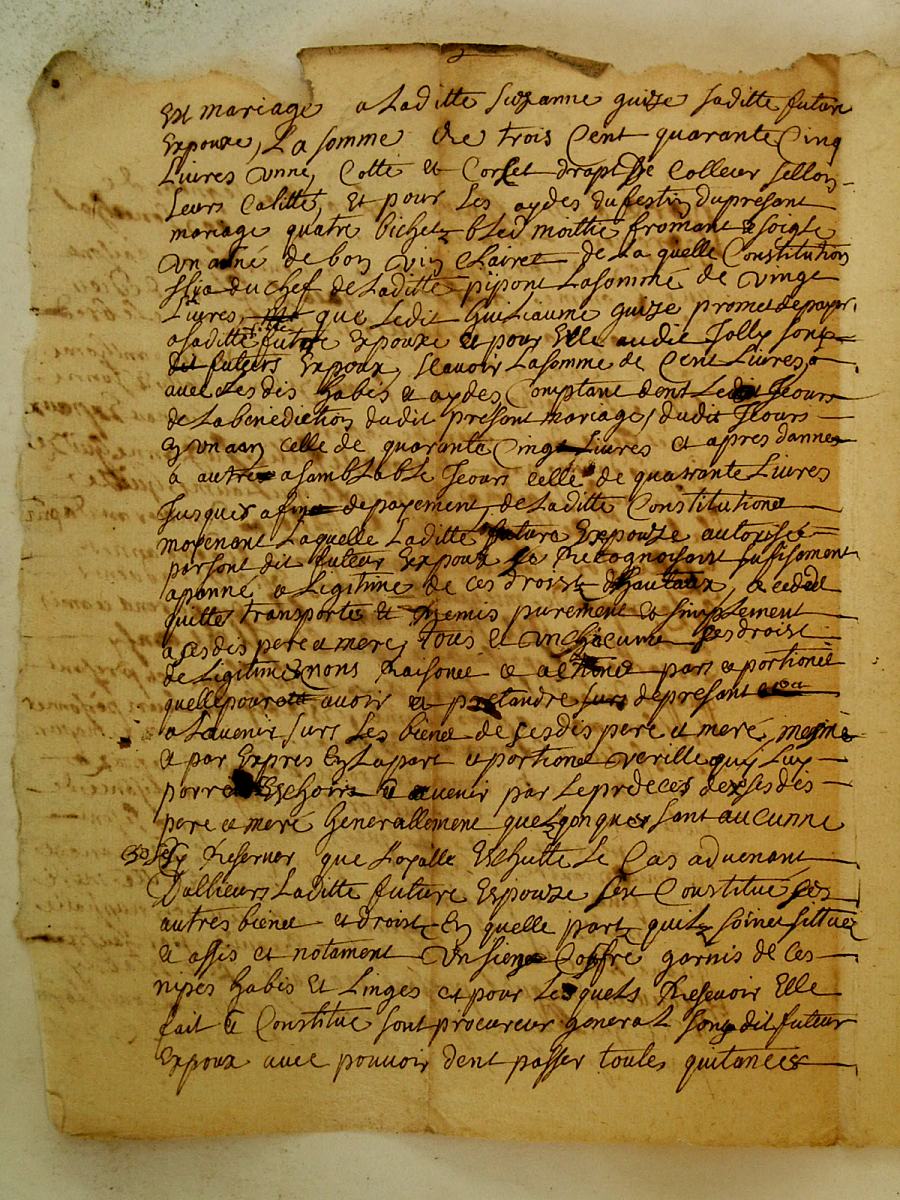 En mariage a Laditte Suzanne guize saditte future
Expouze, La somme de trois Cent quarante Cinq
Livres unne, Cotte et Corset drapt de Colleur sellon
Leurs Calitté, et pour Les aydes du festin du presant
mariage quatre bichetz bled moitié fromant & soigle
un asné de bon vin Clairet de La quelle Constitution
du chef de Laditte pipont La somme de vingt
Livres, que Ledit Guiliaume guize promet de payer
a saditte future Expouze et pour Elle audit Jolly sont
dit futeurs Expoux, scavoir La somme de Cent Livres,
avec Lesdis habis & aydes, Comptant dont Le Jeours
de La benediction dudit present mariage, dudit Jeours
En un an celle de quarante Cinq Livres et apres dannee
a autre a samblable Jeours celle de quarante Livres
Jusques a fin de payement, de Laditte Constitutione
moyenant Laquelle Laditte future Expouze autorisée
par sont dit futeur Expoux se Recognoisant suffisament
apanné, a Legitime de ces droist, a ceded
quitté transporte et Remis purement et simplement
a sesdis pere a mere, tous et un chacune ses droist
de Legitime noms Raisone & actione part a portione
quelle pouroit avoir & pretandre surs de present
a Lavenir, surs Les biene de sesdis pere & meré, mesme
& par Expres En La part a portione verille quy Luy
porroit Eschoirs a avenir par Le predeces de sesdis
pere et meré Generallement quelzonques sant aucunne
Reserver que Loyalle Eschutte Le Cas advenant
Dallieurs Laditte future Expouze sen Constitue ses
autres biene et droist En quelle part quilz soinct sittuez
& assis et notament un siene Coffre garnis de ces
nipes habis Et Linges et pour Lesquels Resevoir Elle
fait & Constitue sont procureur general sondit futeur
Expoux avec pouvoir dent passer toutes quitances